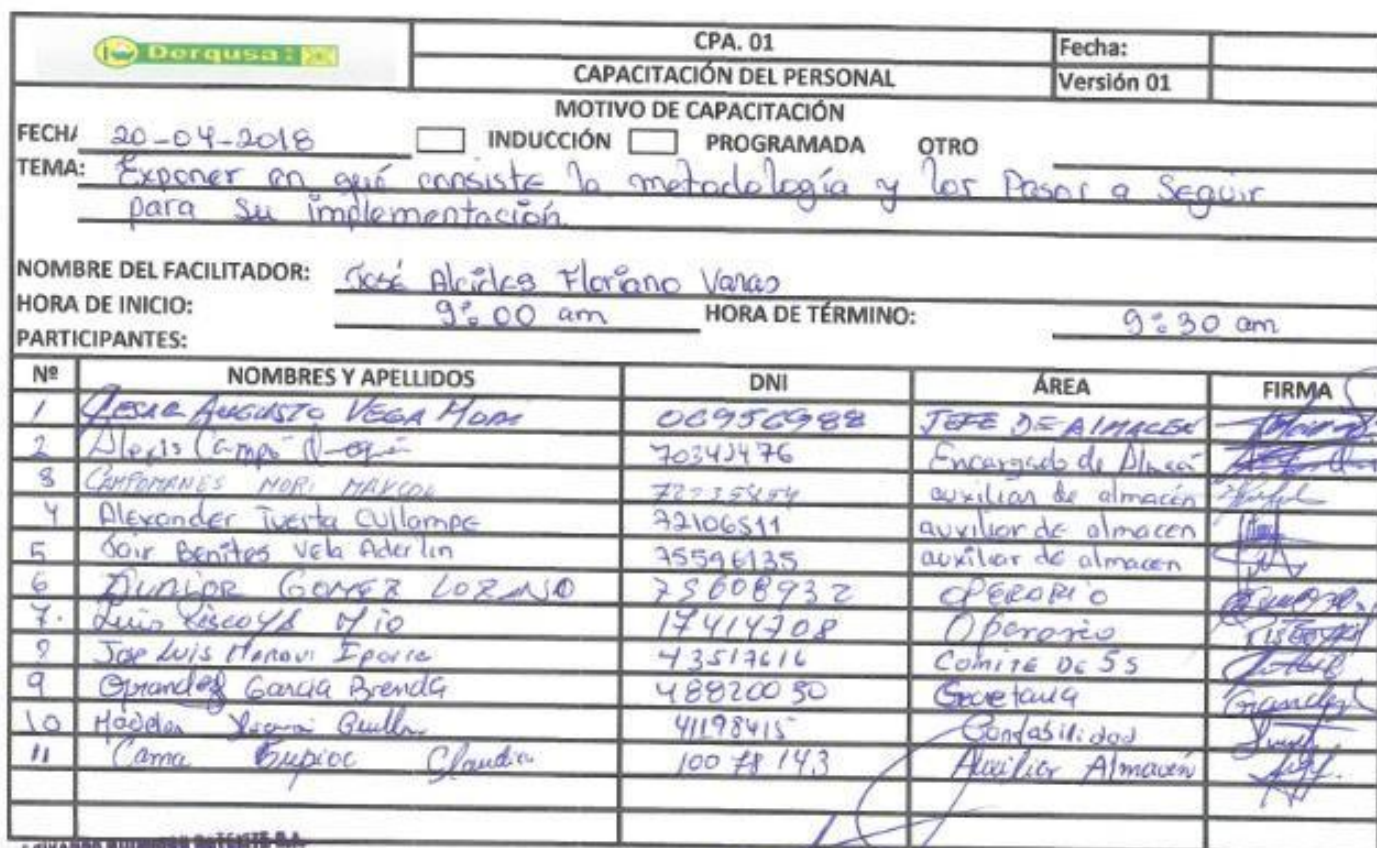 Derqusa
CPA. 01
Fecha:
CAPACITACIÓN DEL PERSONAL
Versión 01
MOTIVO DE CAPACITACIÓN
FECHA 20-04-2018 INDUCCIÓN PROGRAMADA OTRO
TEMA: Exponer en qué consiste la metodología y los Pasos a Seguir
para su implementación.
NOMBRE DEL FACILITADOR: José Alcides Floriano Varas
HORA DE INICIO: 9:00 am HORA DE TÉRMINO: 9:30 am
PARTICIPANTES:
Nº NOMBRES Y APELLIDOS DNI ÁREA FIRMA
1 CESAR AUGUSTO VEGA MORI 06956988 JEFE DE ALMACEN
2 Alexis Campo 70342476 Encargado de
3 CAMPOMANES MORI auxiliar de almacén
4 Alexander Tuesta Cullampe 72106511 auxiliar de almacen
5 Jair Benites Vela Aderlin 75596135 auxiliar de almacen
6 JUNIOR GOMEZ LOZANO 75608932 OPERARIO
7. Luis 17414708 Operario
8 Jose Luis 43517616 COMITE DE 5S
9 Garcia Brenda 48820050 Secretaria
10 41198415 Contabilidad
11 Cama Claudia 10078143 Auxiliar Almacén